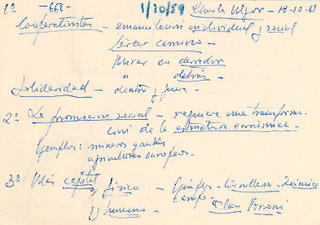 1º -668- 1/20/59 Charla Ulgor - 18-10-61
Cooperativistas - emancipación individual y social
tercer camino -
Mirar en derredor
o detrás -
Solidaridad - dentro y fuera -
2º La promoción social - requiere una transforma-
ción de la estructura económica -
Ejemplos: mineros
agricultores europeos -
3º Más capital 1) físico - Ejemplos - Química
2) humano - Plan